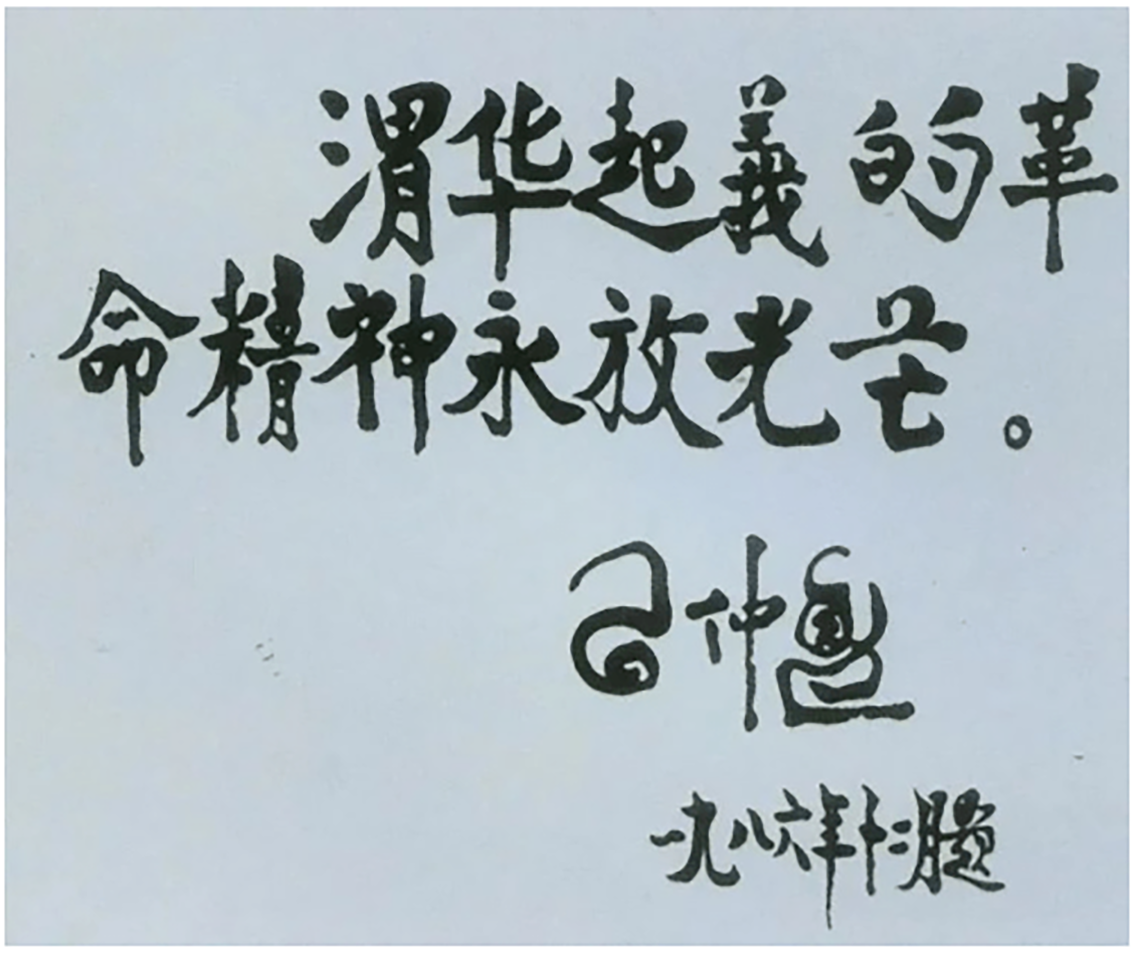 渭华起義的革
命精神永放光芒。
习仲勛
一九八六年十二月题